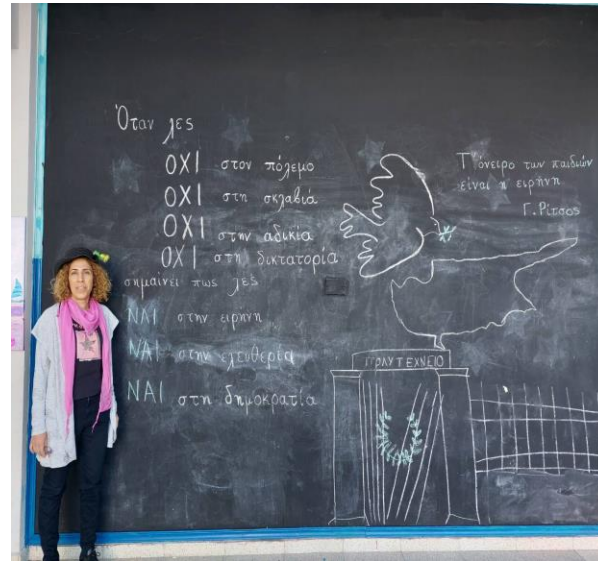 Όταν λες
ΟΧΙ στον πόλεμο
ΟΧΙ στη σκλαβιά
ΟΧΙ στην αδικία
ΟΧΙ στη δικτατορία
σημαίνει πως λες
ΝΑΙ στην ειρήνη
ΝΑΙ στην ελευθερία
ΝΑΙ στη δημοκρατία
Τ' όνειρο των παιδιών
είναι η ειρήνη
Γ. Ρίτσος
ΠΟΛΥΤΕΧΝΕΙΟ